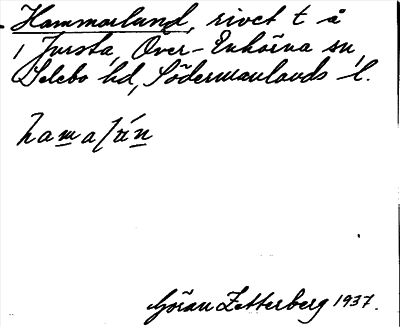 Hammarlund, rivet t å
i Jursta, Över-Enhörna sn,
Selebo hd, Södermanlands l.
Göran Zetterberg 1937.